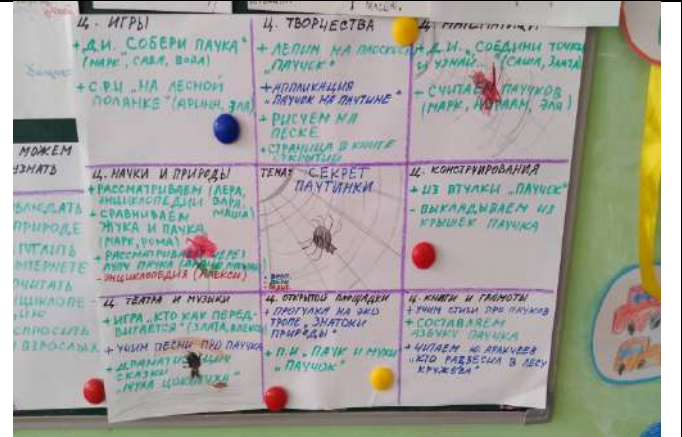 Ц. ИГРЫ
+ Д.И. СОБЕРИ ПАУКА"
(МАРК, САВА, ВОВА)
+ С.Р.И „НА ЛЕСНОЙ
ПОЛЯНКЕ" (АРИНА, ЭЛЯ)
Ц. ТВОРЧЕСТВА
+ ЛЕПИМ НА ПЛОСКОСТИ
„ПАУЧОК"
+ АППЛИКАЦИЯ
„ПАУЧОК НА ПАУТИНЕ"
+ РИСУЕМ НА
ПЕСКЕ
+ СТРАНИЦА В КНИГЕ
ОТКРЫТИЙ
Ц. МАТЕМАТИКИ
+ Д.И. „СОЕДИНИ ТОЧКИ
И УЗНАЙ..." (САША, ЗЛАТА)
- СЧИТАЕМ ПАУЧКОВ
(МАРК, ЭЛЯ)
МОЖЕМ
УЗНАТЬ
ПРИРОДЕ
СПРОСИТЬ
ВЗРОСЛЫХ
Ц. НАУКИ И ПРИРОДЫ
+ РАССМАТРИВАЕМ (ЛЕРА,
ЭНЦИКЛОПЕДИИ ВАРЯ,
+ СРАВНИВАЕМ МАША)
ЖУКА И ПАУКА
(МАРК, РОМА)
+ РАССМАТРИВАЕМ ЧЕРЕЗ
ЛУПУ ПАУКА
- ЭНЦИКЛОПЕДИЯ (АЛЕКСИ)
ТЕМА: СЕКРЕТ
ПАУТИНКИ
Ц. КОНСТРУИРОВАНИЯ
+ ИЗ ВТУЛКИ „ПАУЧОК"
- ВЫКЛАДЫВАЕМ ИЗ
КРЫШЕК ПАУЧКА
Ц. ТЕАТРА И МУЗЫКИ
+ ИГРА „КТО КАК ПЕРЕД-
ВИГАЕТСЯ" (ЗЛАТА,
+ УЧИМ ПЕСНИ ПРО ПАУЧКА
+ ДРАМАТИЗАЦИЯ
СКАЗКИ
„МУХА ЦОКОТУХА"
Ц. ОТКРЫТОЙ ПЛОЩАДКИ
+ ПРОГУЛКИ НА ЭКО
ТРОПЕ „ЗНАТОКИ
ПРИРОДЫ"
+ П.И. „ПАУК И МУХИ"
„ПАУЧОК"
Ц. КНИГИ И ГРАМОТЫ
+ УЧИМ СТИХИ ПРО ПАУКОВ
+ СОСТАВЛЯЕМ
АЗБУКУ ПАУЧКА
+ ЧИТАЕМ Ю. АРАКЧЕЕВ
„КТО РАЗВЕСИЛ В ЛЕСУ
КРУЖЕВА"